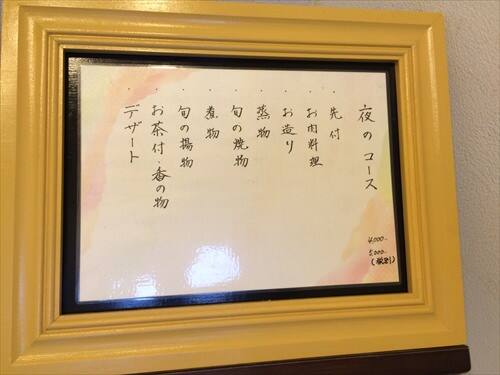 夜のコース
4,000-
5,000-
(税別)
・先付
・お肉料理
・お造り
・蒸物
・旬の焼物
・煮物
・旬の揚物
・お茶付・香の物
・デザート